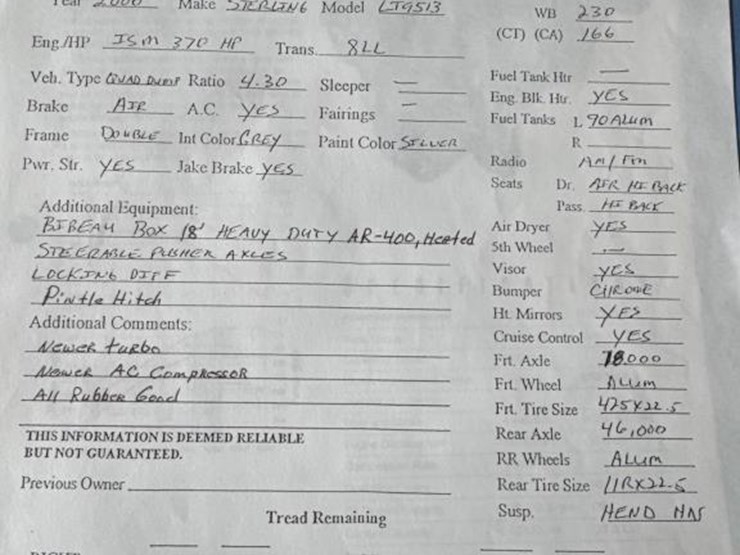 Year 2000 Make STERLING Model LT9513
WB 230
(CT) (CA) 166
Eng/HP ISM 370 HP Trans. 8LL
Veh. Type QUAD DUMP Ratio 4.30 Sleeper —
Fuel Tank Htr —
Eng. Blk. Htr. YES
Brake AIR A.C. YES Fairings —
Fuel Tanks L 90 ALUM
R
Frame DOUBLE Int Color GREY Paint Color SILVER
Radio AM/FM
Pwr. Str. YES Jake Brake YES
Seats Dr. AIR HI BACK
Pass. HI BACK
Additional Equipment:
BIBEAU BOX 18' HEAVY DUTY AR-400, Heated
STEERABLE PUSHER AXLES
LOCKING DIFF
Pintle Hitch
Air Dryer YES
5th Wheel —
Visor YES
Bumper CHROME
Ht. Mirrors YES
Cruise Control YES
Additional Comments:
Newer turbo
Newer AC Compressor
All Rubber Good
Frt. Axle 18000
Frt. Wheel Alum
Frt. Tire Size 425X22.5
Rear Axle 46,000
RR Wheels ALUM
Rear Tire Size 11RX22.5
Susp. HEND HAS
THIS INFORMATION IS DEEMED RELIABLE
BUT NOT GUARANTEED.
Previous Owner
Tread Remaining